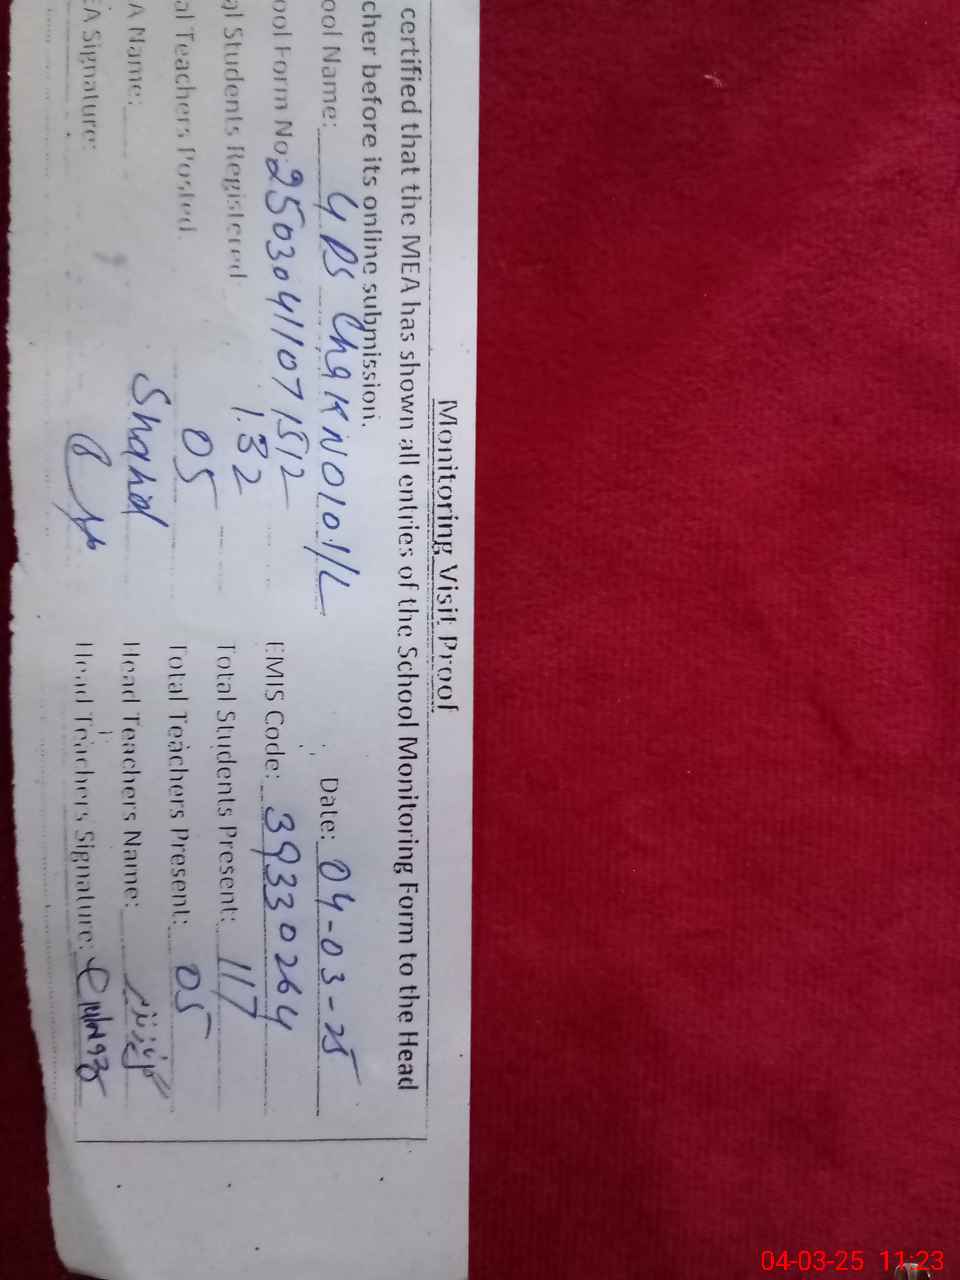 Monitoring Visit Proof
certified that the MEA has shown all entries of the School Monitoring Form to the Head
cher before its online submission.
ool Name: GPS Chak NO 101/L Date: 04-03-25
ool Form No: 25030411071512 EMIS Code: 39330264
al Students Registered 132 Total Students Present: 117
al Teachers Posted. 05 Total Teachers Present: 05
A Name: Shahid Head Teachers Name:
EA Signature: Head Teachers Signature:
04-03-25 11:23